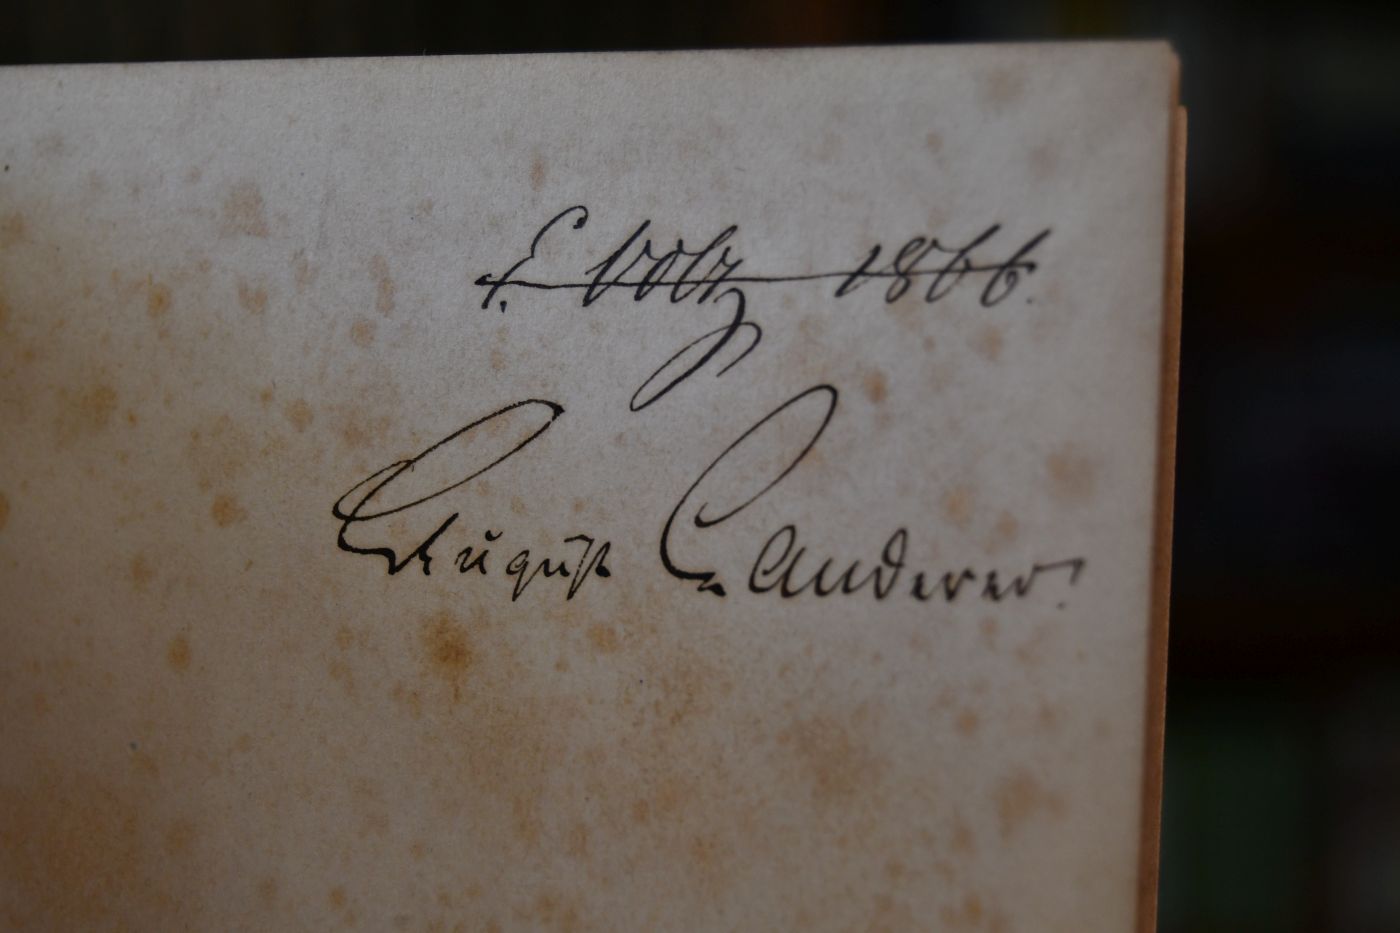 E. Volz 1866.
August Landerer.